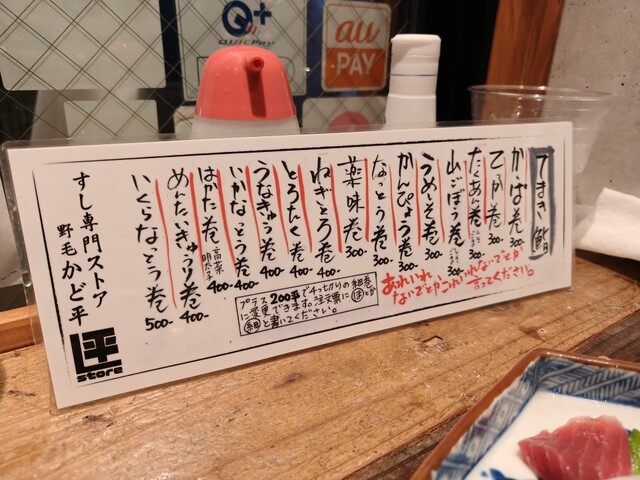 QUICPay
au
PAY
てまき鮨
かっぱ巻 300-
てっか巻 300-
たくあん巻 300-
山ごぼう巻 300-
うめしそ巻 300-
かんぴょう巻 300-
なっとう巻 300-
薬味巻 300-
ねぎとろ巻 400-
とろたく巻 400-
うなきゅう巻 400-
いかなっとう巻 400-
はかた巻 高菜 明太子 400-
めんたいきゅうり巻 400-
いくらなっとう巻 500-
あれいれ
ないでとかこれいれないでとか
言ってください。
プラス200平で
に変更できます。注文票に
細と書いてください。
すし専門ストア
野毛 かど平
平
store